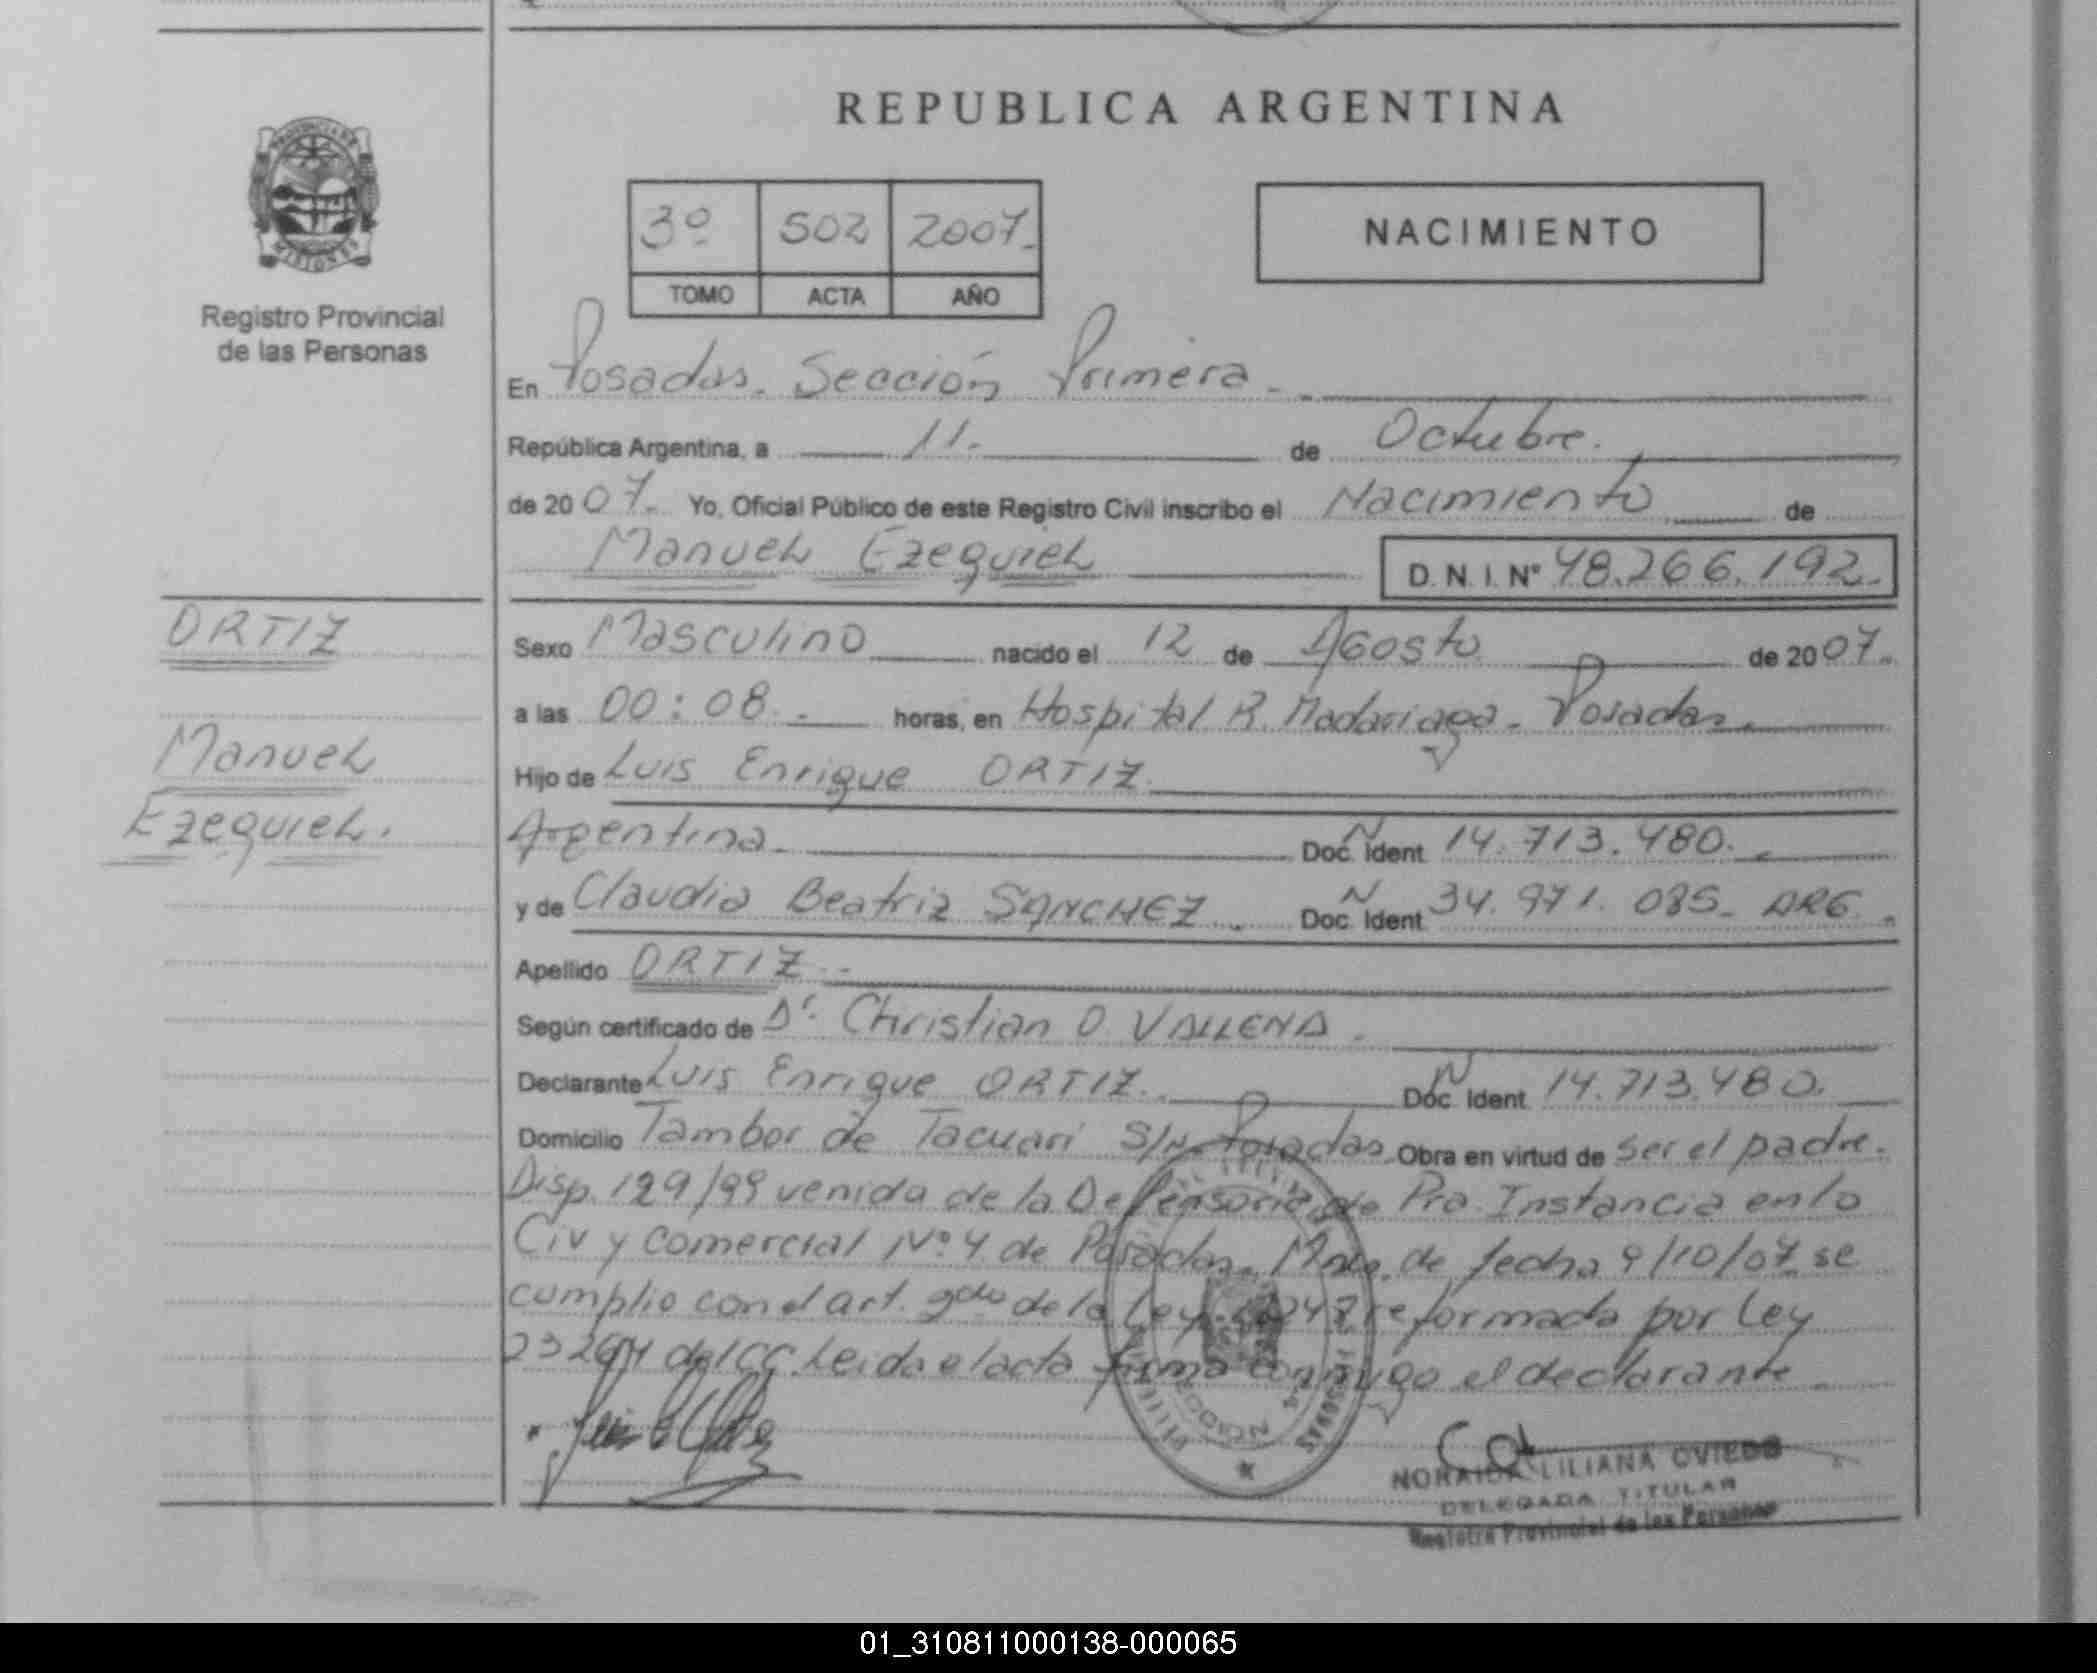 REPUBLICA ARGENTINA
PROVINCIA DE
MISIONES
Registro Provincial
de las Personas
3º 502 2007.
TOMO ACTA AÑO
NACIMIENTO
En Posadas. Sección Primera.
República Argentina, a 11. de Octubre.
de 2007. Yo, Oficial Público de este Registro Civil inscribo el Nacimiento de
Manuel Ezequiel D.N.I.Nº 48.266.192.
ORTIZ
Manuel
Ezequiel.
Sexo Masculino nacido el 12 de Agosto de 2007.
a las 00:08. horas, en Hospital R. Madariaga. Posadas.
Hijo de Luis Enrique ORTIZ.
Argentina. Doc. Ident. N 14.713.480.
y de Claudia Beatriz SANCHEZ. Doc. Ident. N 34.971.085. ARG.
Apellido ORTIZ.
Según certificado de Dr. Christian O. VALLENA.
Declarante Luis Enrique ORTIZ. Doc. Ident. N 14.713.480.
Domicilio Tambor de Tacuari S/N. Posadas. Obra en virtud de ser el padre.
Disp. 129/99 venida de la Defensoria de Pra. Instancia en lo
Civ y Comercial Nº 4 de Posadas. Mnes. de fecha 9/10/07 se
cumplio con el art. 2do de la Ley reformada por Ley
23264 del CC. Leida el acta firma conmigo el declarante.
NORAIDA LILIANA OVIEDO
DELEGADA TITULAR
Registro Provincial de las Personas
01_310811000138-000065